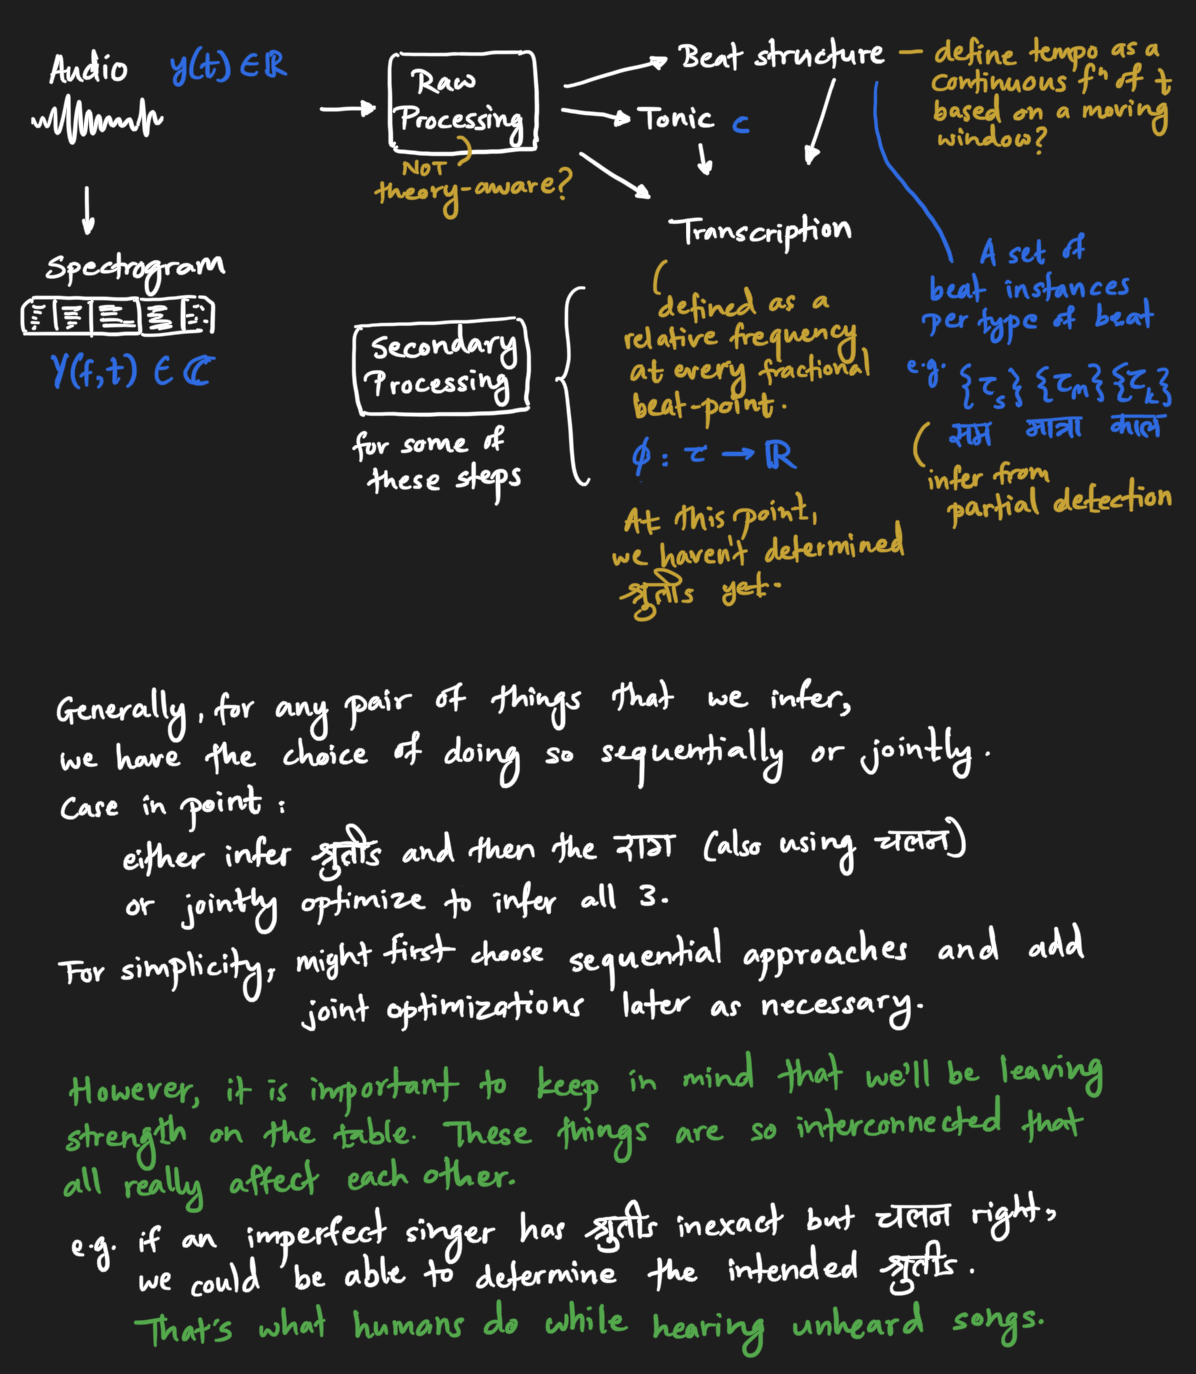 Audio y(t) ∈ ℝ
Spectrogram
Y(f,t) ∈ ℂ
Raw
Processing
NOT
theory-aware?
Beat structure
Tonic c
Transcription
— define tempo as a
continuous fⁿ of t
based on a moving
window?
Secondary
Processing
for some of
these steps
defined as a
relative frequency
at every fractional
beat-point.
ϕ : τ → ℝ
At this point,
we haven't determined
श्रुतीs yet.
A set of
beat instances
per type of beat
e.g. {τₛ} {τₘ} {τₖ}
सम मात्रा काल
infer from
partial detection
Generally, for any pair of things that we infer,
we have the choice of doing so sequentially or jointly.
Case in point :
either infer श्रुतीs and then the राग (also using चलन)
or jointly optimize to infer all 3.
For simplicity, might first choose sequential approaches and add
joint optimizations later as necessary.
However, it is important to keep in mind that we'll be leaving
strength on the table. These things are so interconnected that
all really affect each other.
e.g. if an imperfect singer has श्रुतीs inexact but चलन right,
we could be able to determine the intended श्रुतीs.
That's what humans do while hearing unheard songs.